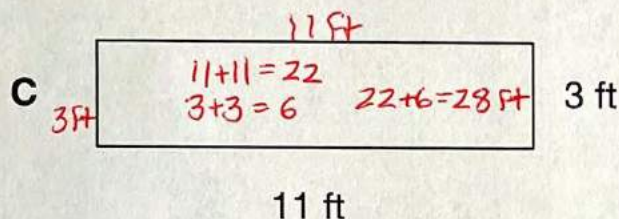 11 ft
C
11+11=22
3+3=6
22+6=28 ft
3 ft
3 ft
11 ft